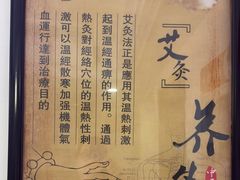 『艾灸』
养生
艾灸法正是應用其溫熱刺激
起到溫經通痹的作用。通過
熱灸對經絡穴位的溫熱性刺
激可以溫經散寒加强機體氣
血運行達到治療目的